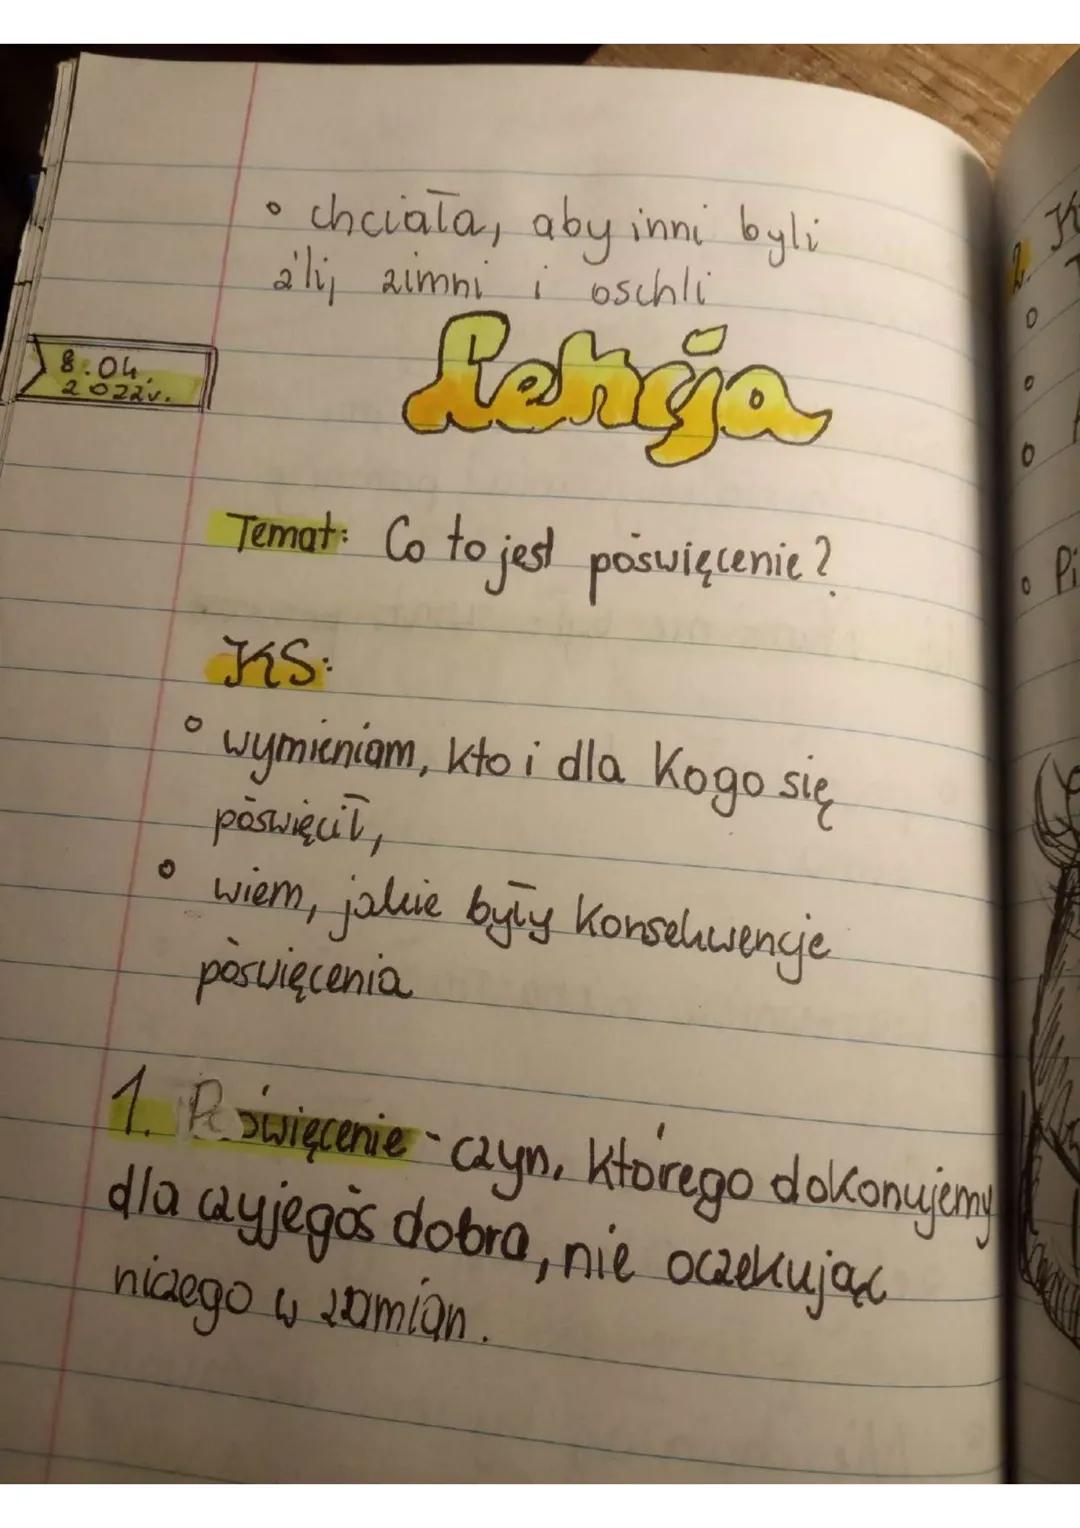 • chciała, aby inni byli
źli, zimni i oschli
8.04.
2022r.
Lekcja
Temat: Co to jest poświęcenie?
KS:
• wymieniam, kto i dla kogo się
poświęcił,
• wiem, jakie były konsekwencje
poświęcenia
1. Poświęcenie - czyn, którego dokonujemy
dla czyjegoś dobra, nie oczekując
niczego w zamian.
2. K
• Pi